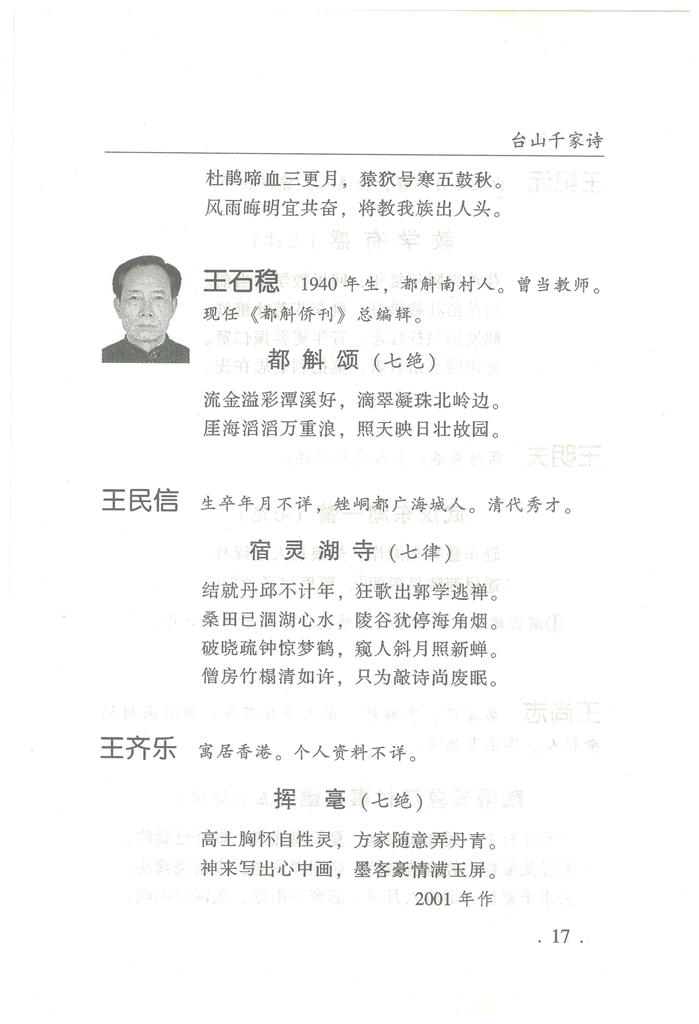 台山千家诗
杜鹃啼血三更月，猿狖号寒五鼓秋。
风雨晦明宜共奋，将教我族出人头。
王石稳 1940年生，都斛南村人。曾当教师。
现任《都斛侨刊》总编辑。
都斛颂（七绝）
流金溢彩潭溪好，滴翠凝珠北岭边。
厓海滔滔万重浪，照天映日壮故园。
王民信 生卒年月不详，矬峒都广海城人。清代秀才。
宿灵湖寺（七律）
结就丹邱不计年，狂歌出郭学逃禅。
桑田已涸湖心水，陵谷犹停海角烟。
破晓疏钟惊梦鹤，窥人斜月照新蝉。
僧房竹榻清如许，只为敲诗尚废眠。
王齐乐 寓居香港。个人资料不详。
挥毫（七绝）
高士胸怀自性灵，方家随意弄丹青。
神来写出心中画，墨客豪情满玉屏。
2001年作
. 17 .